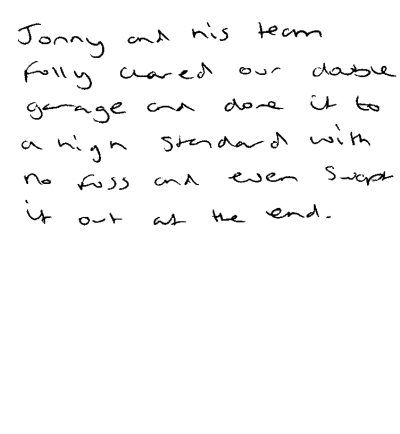 Jonny and his team
fully cleared our double
garage and done it to
a high standard with
no fuss and even swept
it out at the end.